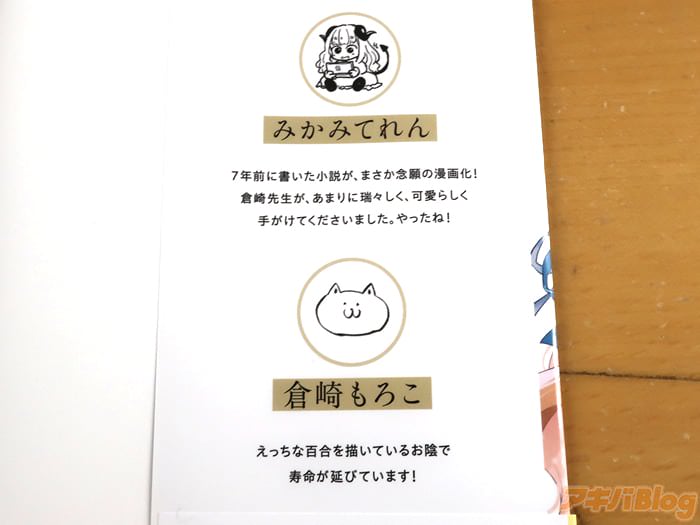 みかみてれん
7年前に書いた小説が、まさか念願の漫画化!
倉崎先生が、あまりに瑞々しく、可愛らしく
手がけてくださいました。やったね!
倉崎もろこ
えっちな百合を描いているお陰で
寿命が延びています!
アキバBlog